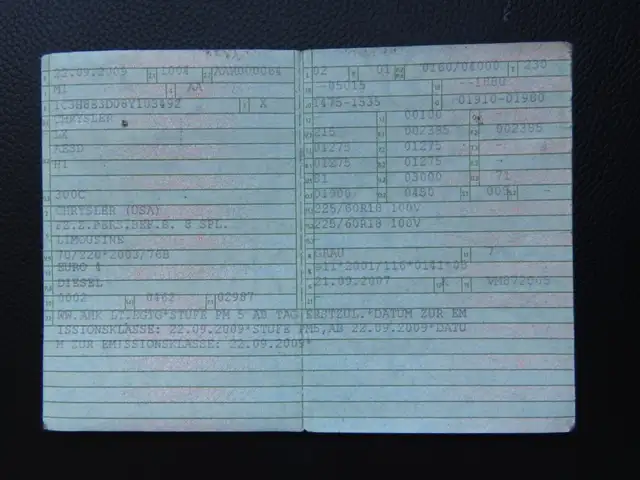 22.09.2009 1004 AAH000084
M1 AA
1C3H8B3D08Y103492 X
CHRYSLER
LX
AE3D
H1
300C
CHRYSLER (USA)
FZ.Z.PERS.BEF.B. 8 SPL.
LIMOUSINE
70/220*2003/76B
EURO 4
DIESEL
0002 0462 02987
WW.AHK LT.EGTG*STUFE PM 5 AB TAG ERSTZUL.*DATUM ZUR EM
ISSIONSKLASSE: 22.09.2009*STUFE PM5,AB 22.09.2009*DATU
M ZUR EMISSIONSKLASSE: 22.09.2009*
02 01 0160/04000 230
--05015 --1880
1475-1535 01910-01980
00100 -
215 002385 002385
01275 01275 -
01275 01275 -
81 03000 71
01900 0450
225/60R18 100V
225/60R18 100V
GRAU 7
e11*2001/116*0141*08
21.09.2007